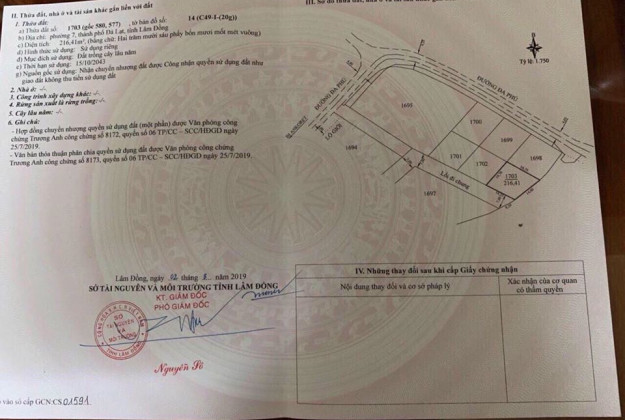 II. Thửa đất, nhà ở và tài sản khác gắn liền với đất
1. Thửa đất:
a) Thửa đất số: 1703 (gốc 580, 577), tờ bản đồ số: 14 (C49-I-(20g))
b) Địa chỉ: phường 7, thành phố Đà Lạt, tỉnh Lâm Đồng
c) Diện tích: 216,41m², (bằng chữ: Hai trăm mười sáu phẩy bốn mươi mốt mét vuông)
d) Hình thức sử dụng: Sử dụng riêng
đ) Mục đích sử dụng: Đất trồng cây lâu năm
e) Thời hạn sử dụng: 15/10/2043
g) Nguồn gốc sử dụng: Nhận chuyển nhượng đất được Công nhận quyền sử dụng đất như
giao đất không thu tiền sử dụng đất
2. Nhà ở: -/-.
3. Công trình xây dựng khác: -/-.
4. Rừng sản xuất là rừng trồng: -/-.
5. Cây lâu năm: -/-.
6. Ghi chú:
- Hợp đồng chuyển nhượng quyền sử dụng đất (một phần) được Văn phòng công chứng
Trương Anh công chứng số 8172, quyển số 06 TP/CC – SCC/HĐGD ngày
25/7/2019.
- Văn bản thỏa thuận phân chia quyền sử dụng đất được Văn phòng công chứng
Trương Anh công chứng số 8173, quyển số 06 TP/CC – SCC/HĐGD ngày 25/7/2019.
Lâm Đồng, ngày tháng 8 năm 2019
SỞ TÀI NGUYÊN VÀ MÔI TRƯỜNG TỈNH LÂM ĐỒNG
KT. GIÁM ĐỐC
PHÓ GIÁM ĐỐC
SỞ
TÀI NGUYÊN
VÀ
MÔI TRƯỜNG
TỈNH LÂM ĐỒNG
vào sổ cấp GCN:CS 01591
Tỷ lệ: 1.750
ĐƯỜNG ĐA PHÚ
ĐƯỜNG ĐA PHÚ
LỘ GIỚI
1695
1700
1699
1698
1701
1702
1703
216,41
1694
1697
Lối đi chung
IV. Những thay đổi sau khi cấp Giấy chứng nhận
Nội dung thay đổi và cơ sở pháp lý
Xác nhận của cơ quan
có thẩm quyền